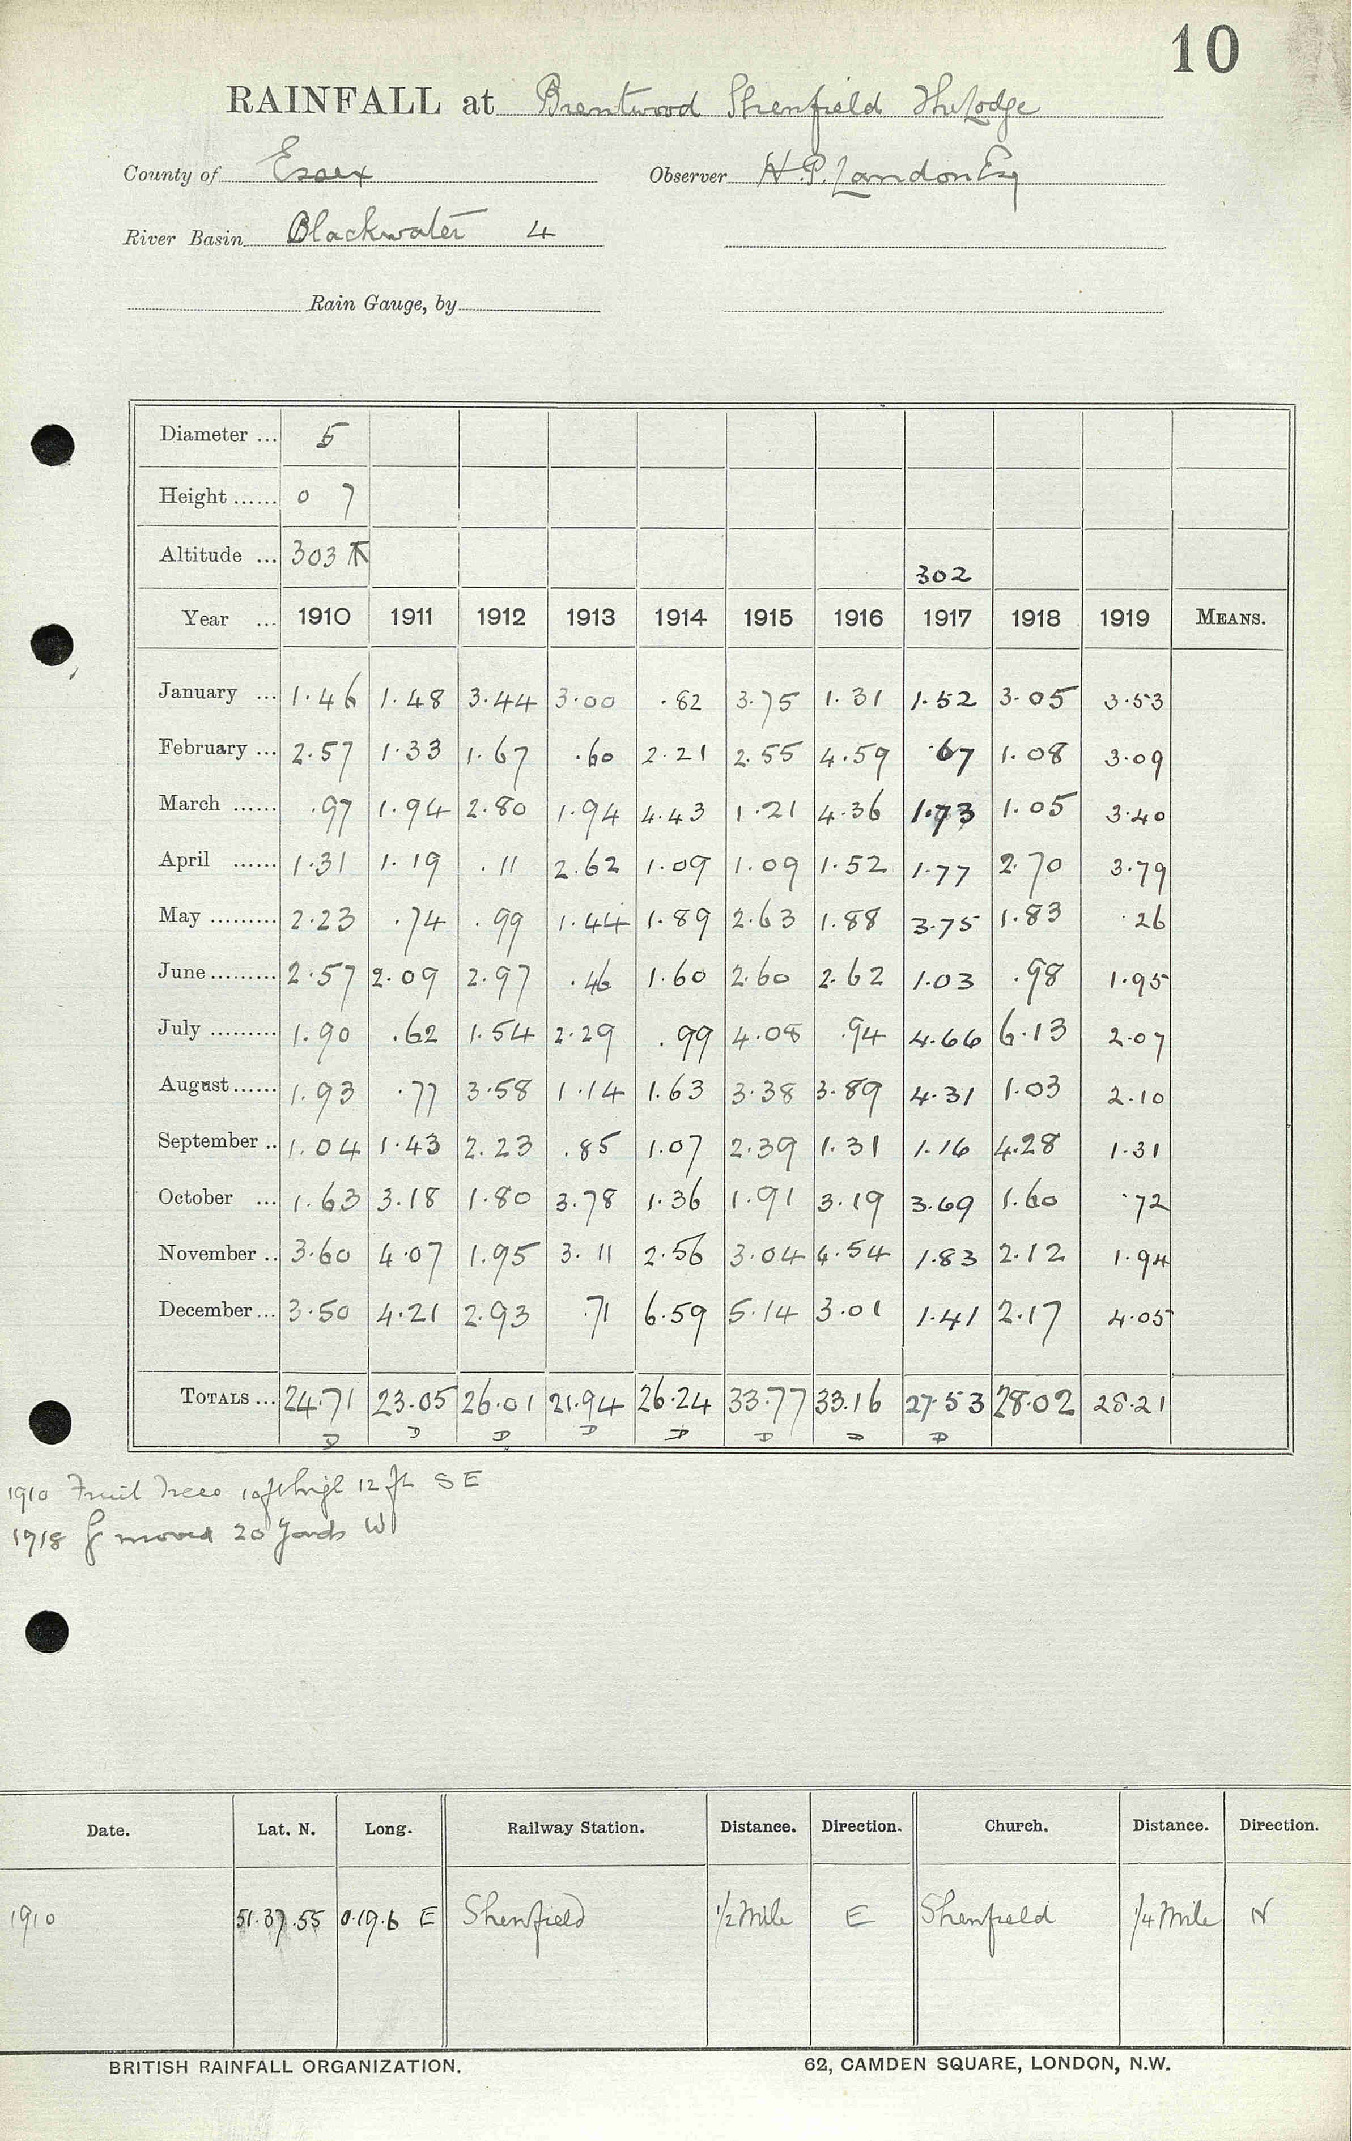 10
RAINFALL at Brentwood Shenfield The Lodge
County of Essex Observer H.P. Landon Esq
River Basin Blackwater 4
Rain Gauge, by
Diameter ... 5
Height ...... 0 7
Altitude ... 303 302
Year ... 1910 1911 1912 1913 1914 1915 1916 1917 1918 1919 MEANS.
January ... 1.46 1.48 3.44 3.00 .82 3.75 1.31 1.52 3.05 3.53
February ... 2.57 1.33 1.67 .60 2.21 2.55 4.59 .67 1.08 3.09
March ...... .97 1.94 2.80 1.94 4.43 1.21 4.36 1.73 1.05 3.40
April ...... 1.31 1.19 .11 2.62 1.09 1.09 1.52 1.77 2.70 3.79
May ......... 2.23 .74 .99 1.44 1.89 2.63 1.88 3.75 1.83 .26
June ......... 2.57 2.09 2.97 .46 1.60 2.60 2.62 1.03 .98 1.95
July ......... 1.90 .62 1.54 2.29 .99 4.08 .94 4.66 6.13 2.07
August ...... 1.93 .77 3.58 1.14 1.63 3.38 3.89 4.31 1.03 2.10
September .. 1.04 1.43 2.23 .85 1.07 2.39 1.31 1.16 4.28 1.31
October ... 1.63 3.18 1.80 3.78 1.36 1.91 3.19 3.69 1.60 .72
November .. 3.60 4.07 1.95 3.11 2.56 3.04 4.54 1.83 2.12 1.94
December ... 3.50 4.21 2.93 .71 6.59 5.14 3.01 1.41 2.17 4.05
TOTALS ... 24.71 23.05 26.01 21.94 26.24 33.77 33.16 27.53 28.02 28.21
D D D D D D D D
1910 Fruit Trees 10 ft high 12 ft SE
1918 G moved 20 yards W
Date. Lat. N. Long. Railway Station. Distance. Direction. Church. Distance. Direction.
1910 51.37.55 0.19.6 E Shenfield 1/2 Mile E Shenfield 1/4 Mile N
BRITISH RAINFALL ORGANIZATION. 62, CAMDEN SQUARE, LONDON, N.W.